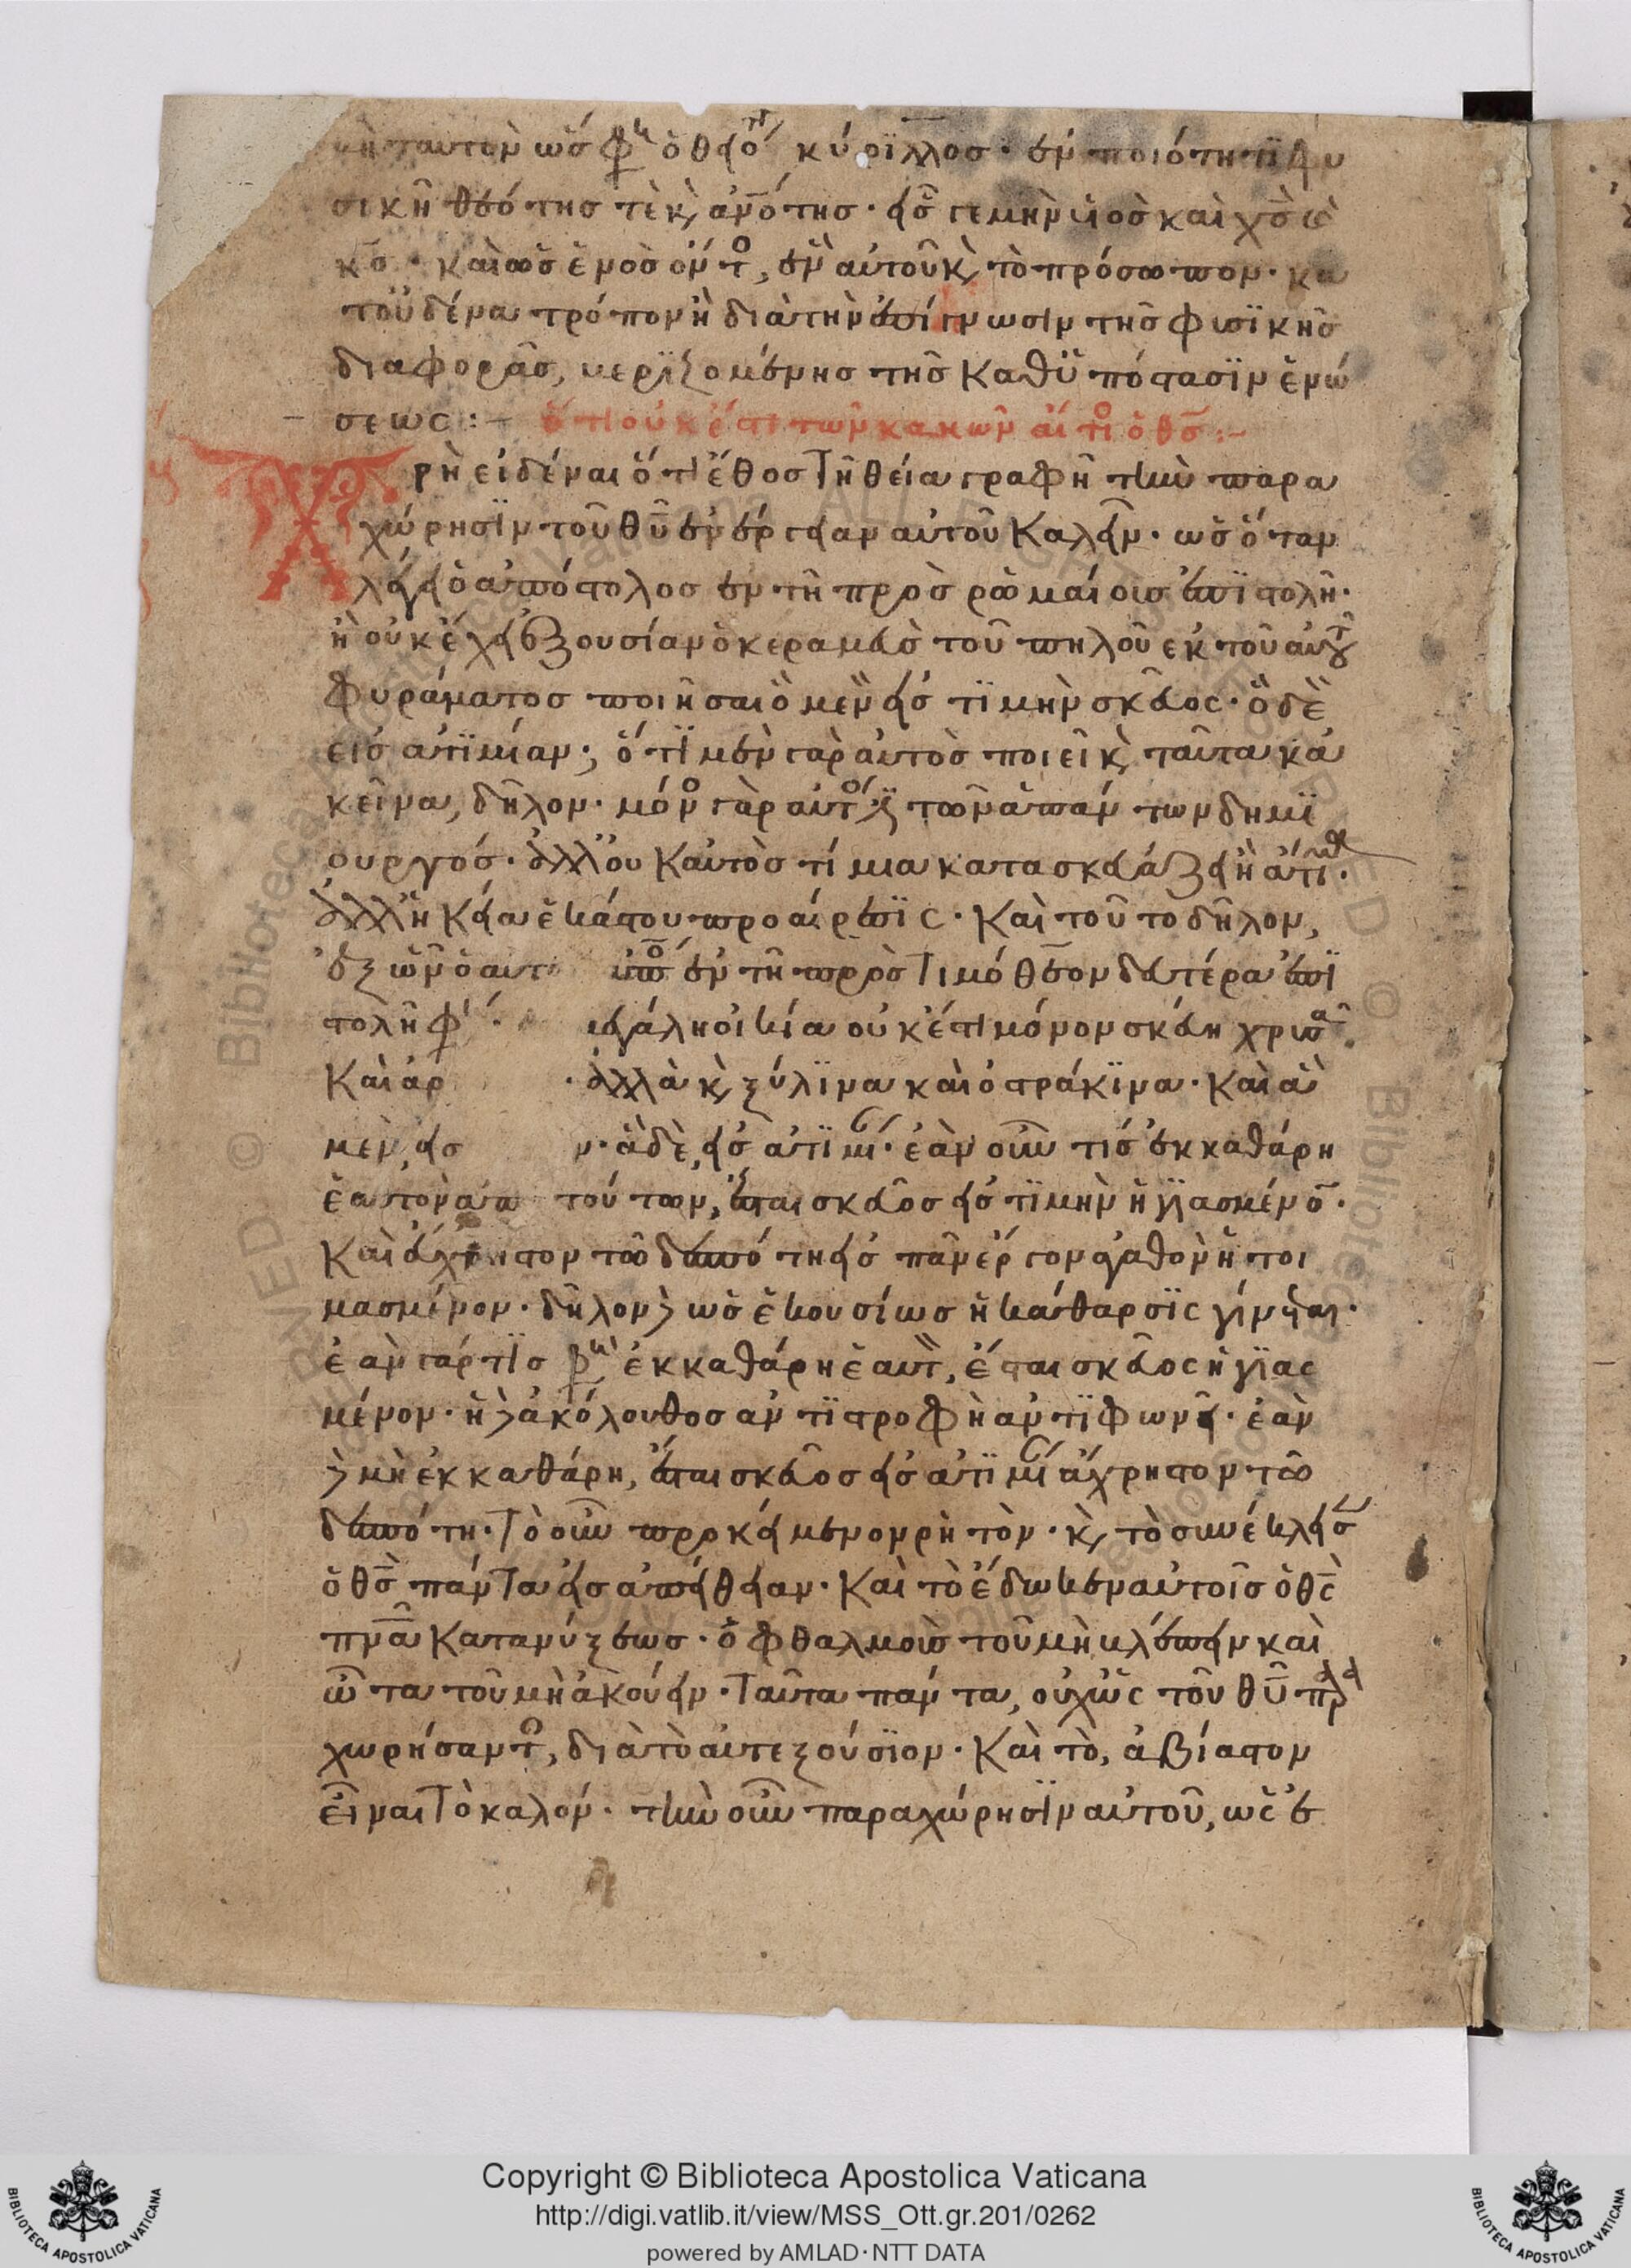 μὴ ταυτὸν ὥς φη ὁ θεῖος κύριλλος· ἐν ποιότητι φυ
σικῆ θεότης τὲ κ ανότης· εἷς γε μὴν υἱὸς καὶ χς κ
κς· καὶ ὡς ἑνὸς ὄντος, ἓν αὐτοῦ κ τὸ πρόσωπον· κα
τ' οὐδένα τρόπον ἢ διὰ τὴν ἐπίγνωσιν τῆς φυσικῆς
διαφορᾶς, μεριζομένης τῆς καθ' ὑπόστασιν ἑνώ
σεως :- ὅτι οὐκ ἔστι τῶν κακῶν αἴτιος ὁ θς :-
Χρὴ εἰδέναι ὅτι ἔθος τῆ θεία γραφῆ τὴν παρα
χώρησιν τοῦ θυ ἐνέργειαν αὐτοῦ καλεῖν· ὡς ὅταν
λέγει ὁ ἀπόστολος ἐν τῆ πρὸς ῥωμαίοις ἐπιστολῆ·
ἢ οὐκ ἔχει ἐξουσίαν ὁ κεραμεὺς τοῦ πηλοῦ εκ τοῦ αὐτοῦ
φυράματος ποιῆσαι ὃ μὲν εἰς τιμὴν σκεῦος· ὃ δὲ
εις ἀτιμίαν; ὅτι μὲν γὰρ αὐτὸς ποιεῖ κ ταῦτα κἀ
κεῖνα, δῆλον· μόνος γὰρ αὐτός ἐστι τῶν ἁπάντων δημι
ουργός· ἀλλ' ου κ' αὐτὸς τίμια κατασκευάζει ἢ ἄτιμα·
ἀλλ' ἡ οἰκεία ἑκάστου προαίρεσις· καὶ τοῦτο δῆλον,
ἐξ ὧν ὁ αὐτ ἀπο ἐν τῆ πρὸς τιμόθεον δευτέρα ἐπι
στολῆ φη· εγάλη οἰκία οὐκ ἔστι μόνον σκεύη χρυσᾶ
καὶ ἀρ · ἀλλὰ κ ξύλινα καὶ ὀστράκινα· καὶ ἃ
μὲν εἰς ν· ἃ δὲ, εἰς ἀτιμίαν· ἐὰν οὖν τις ἐκκαθάρη
ἑαυτὸν ἀπ τούτων, ἔσται σκεῦος εἰς τιμὴν ἡγιασμένον·
καὶ εὔχρηστον τῶ δεσπότη εἰς πᾶν ἔργον ἀγαθὸν ἡτοι
μασμένον· δῆλον δὲ ὡς ἑκουσίως ἡ κάθαρσις γίνεται·
ἐὰν γάρ τις φη ἐκκαθάρη ἑαυτὸν, ἔσται σκεῦος ἡγιας
μένον· ἡ δὲ ἀκόλουθος ἀντιστροφὴ ἀντιφωνεῖ· ἐὰν
δὲ μὴ ἐκκαθάρη, ἔσται σκεῦος εἰς ἀτιμίαν ἄχρηστον τῶ
δεσπότη· τὸ οὖν προκείμενον ρητὸν· κ τὸ συνέκλεισεν
ὁ θς πάντας εἰς ἀπείθειαν· καὶ τὸ ἔδωκεν αὐτοῖς ὁ θς
πνα κατανύξεως· ὀφθαλμοὺς τοῦ μὴ βλέπειν καὶ
ὦτα τοῦ μὴ ἀκούειν· ταῦτα πάντα, οὐχ ὡς τοῦ θυ παρα
χωρήσαντος, διὰ τὸ αὐτεξούσιον· καὶ τὸ, ἀβίαστον
εἶναι τὸ καλόν· τὴν οὖν παραχώρησιν αὐτοῦ, ὡς ἐ
Copyright © Biblioteca Apostolica Vaticana
http://digi.vatlib.it/view/MSS_Ott.gr.201/0262
powered by AMLAD·NTT DATA
BIBLIOTECA APOSTOLICA VATICANA
BIBLIOTECA APOSTOLICA VATICANA